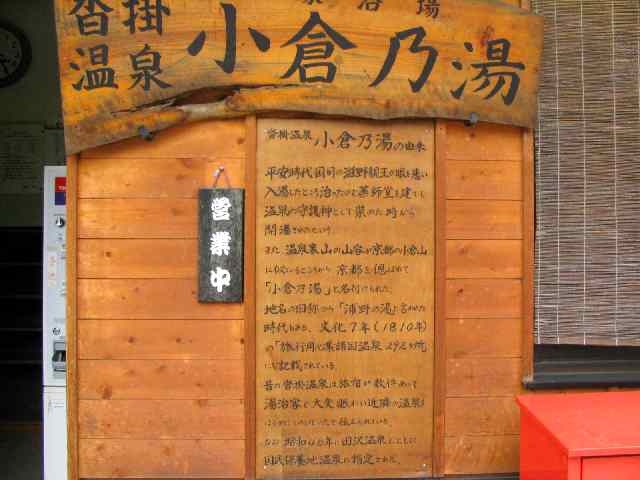 沓掛温泉
小倉乃湯
営業中
沓掛温泉 小倉乃湯の由来
平安時代国司の滋野親王が眼を患い
入湯したところ治ったので薬師堂を建てて
温泉の守護神として崇めた時から
開湯されたという
また 温泉裏山の山容が京都の小倉山
に似ているところから 京都を偲ばれて
「小倉乃湯」と名付けられた
地名の旧称から「浦野の湯」と言われた
時代もあり、文化7年(1810年)
の「旅行用心集諸国温泉292ヶ所
にも記載されている。
昔の沓掛温泉は旅宿が数件あって
湯治客で大変賑わい近隣の温泉を
なお 昭和40年に田沢温泉とともに
国民保養地温泉に指定された